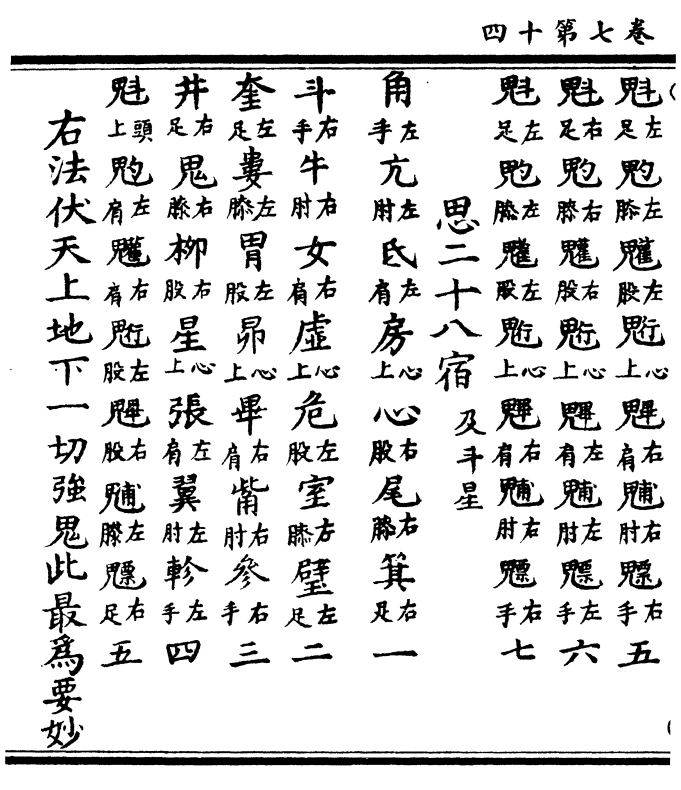 卷七第十四
魁左足左膝左股䰢心上魓右肩右肘魒右手五
魁右足右膝右股䰢心上魓左肩左肘魒左手六
魁左足左膝左股䰢心上魓右肩右肘魒右手七
思二十八宿及斗星
角左手亢左肘氐左肩房心上心右股尾右膝箕右足一
斗右手牛右肘女右肩虛心上危左股室左膝壁左足二
奎左足婁左膝胃左股昴心上畢右肩觜右肘參右手三
井右足鬼右膝柳右股星心上張左肩翼左肘軫左手四
魁頭上左肩右肩䰢左股魓右股左膝魒右足五
右法伏天上地下一切強鬼此最爲要妙